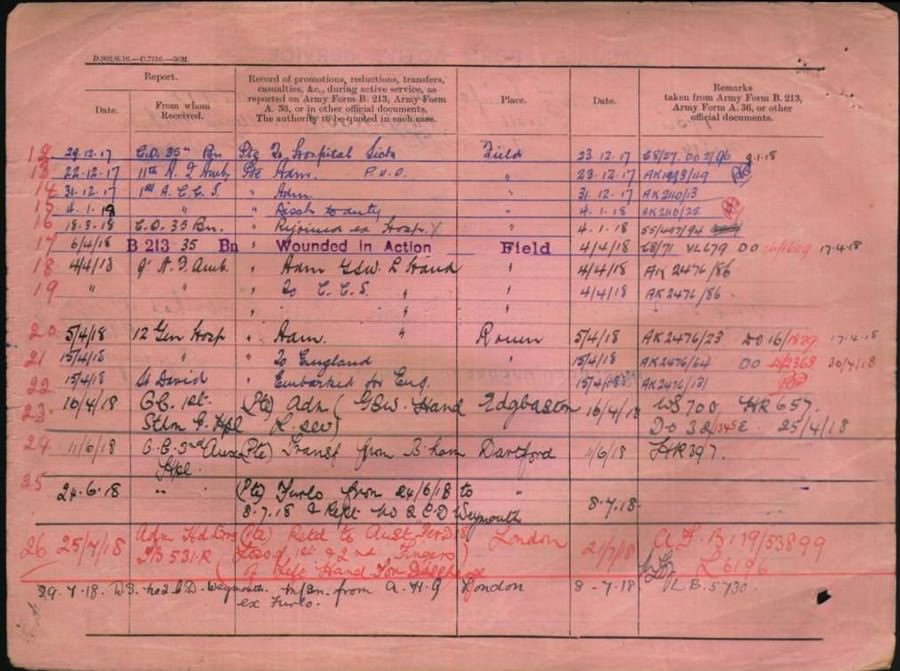 D.903/6.16.—C.7116.—50M.
Report.
Record of promotions, reductions, transfers, casualties, &c., during active service, as reported on Army Form B. 213, Army Form A. 36, or in other official documents. The authority to be quoted in each case.
Place.
Date.
Remarks taken from Army Form B. 213, Army Form A. 36, or other official documents.
Date.
From whom Received.
12 29.12.17 C.O. 35th Bn Pte To Hospital Sick Field 23.12.17 9.1.18
13 22.12.17 11th A. F Amb. Pte Adm. P.U.O. " 23.12.17
14 31.12.17 1st A.C.C.S. " Adm " 31.12.17 AK2110/13
15 4.1.18 " " Disch to duty " 4.1.18 AK2110/25
16 18.3.18 C.O. 35 Bn. " Rejoined ex Hosp. 4.1.18
17 6/4/18 B 213 35 Bn " Wounded in Action Field 4/4/18 DO 17.4.18
18 4/4/18 9th A. F Amb. " Adm GSW. L Hand " 4/4/18 AK 2476/86
19 " " " To C.C.S. " " 4/4/18 AK2476/86
20 5/4/18 12 Gen Hosp " Adm. " Rouen 5/4/18 AK2476/23 DO 16/ 17.4.18
21 15/4/18 " " To England " 15/4/18 AK2476/64 DO 30/4/18
22 15/4/18 St David " Embarked for Eng. " 15/4/18 AK2476/121
23 16/4/18 O.C. 1st (Pte) Adm (GSW. Hand Edgbaston 16/4/18 WS 700, HR 657.
Sthn G. Hpl L. sev) DO 32/ 25/4/18
24 11/6/18 O.C. 3rd Aux (Pte) Transf from B'ham Dartford 11/6/18 HR 397.
Hpl.
25 24.6.18 " " (Pte) Furlo from 24/6/18 to " 8.7.18.
8.7.18 & Rept No 2 C.D Weymouth
26 25/7/18 Adm Hdqrs (Pte) Retd to Aust London 21/7/18 A.F. B179/53899
(Loss of 1st & 2nd Fingers) K 6196
of Left Hand For Discharge
29.7.18. No 2 C.D. Weymouth. M/In. from A.H.Q London 8-7-18. VL.B. 5730.
ex Furlo.